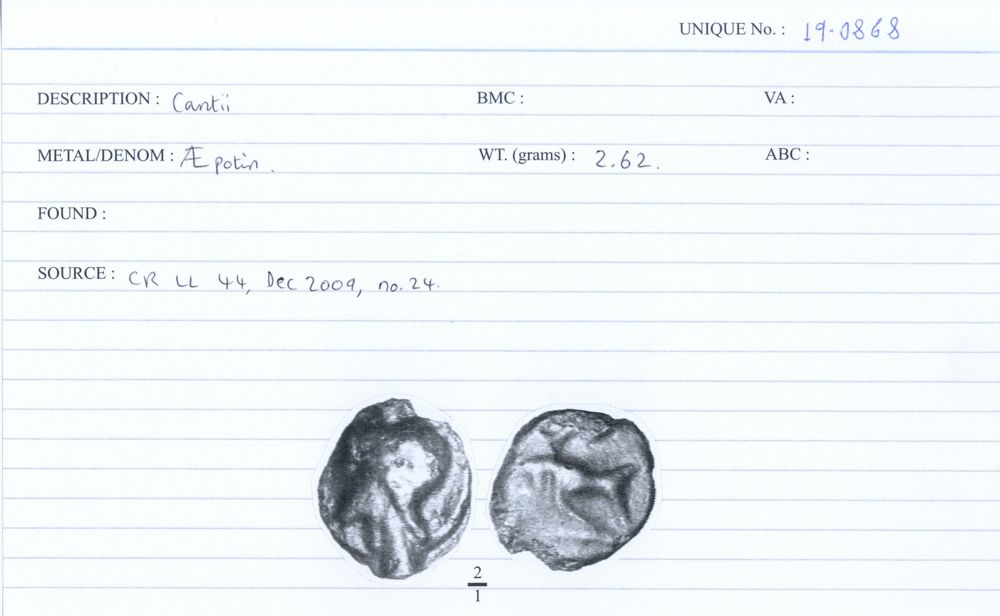 UNIQUE No. : 19-0868
DESCRIPTION : Cantii BMC : VA :
METAL/DENOM : Æ potin. WT. (grams) : 2.62. ABC :
FOUND :
SOURCE : CR LL 44, Dec 2009, no. 24.
2
1